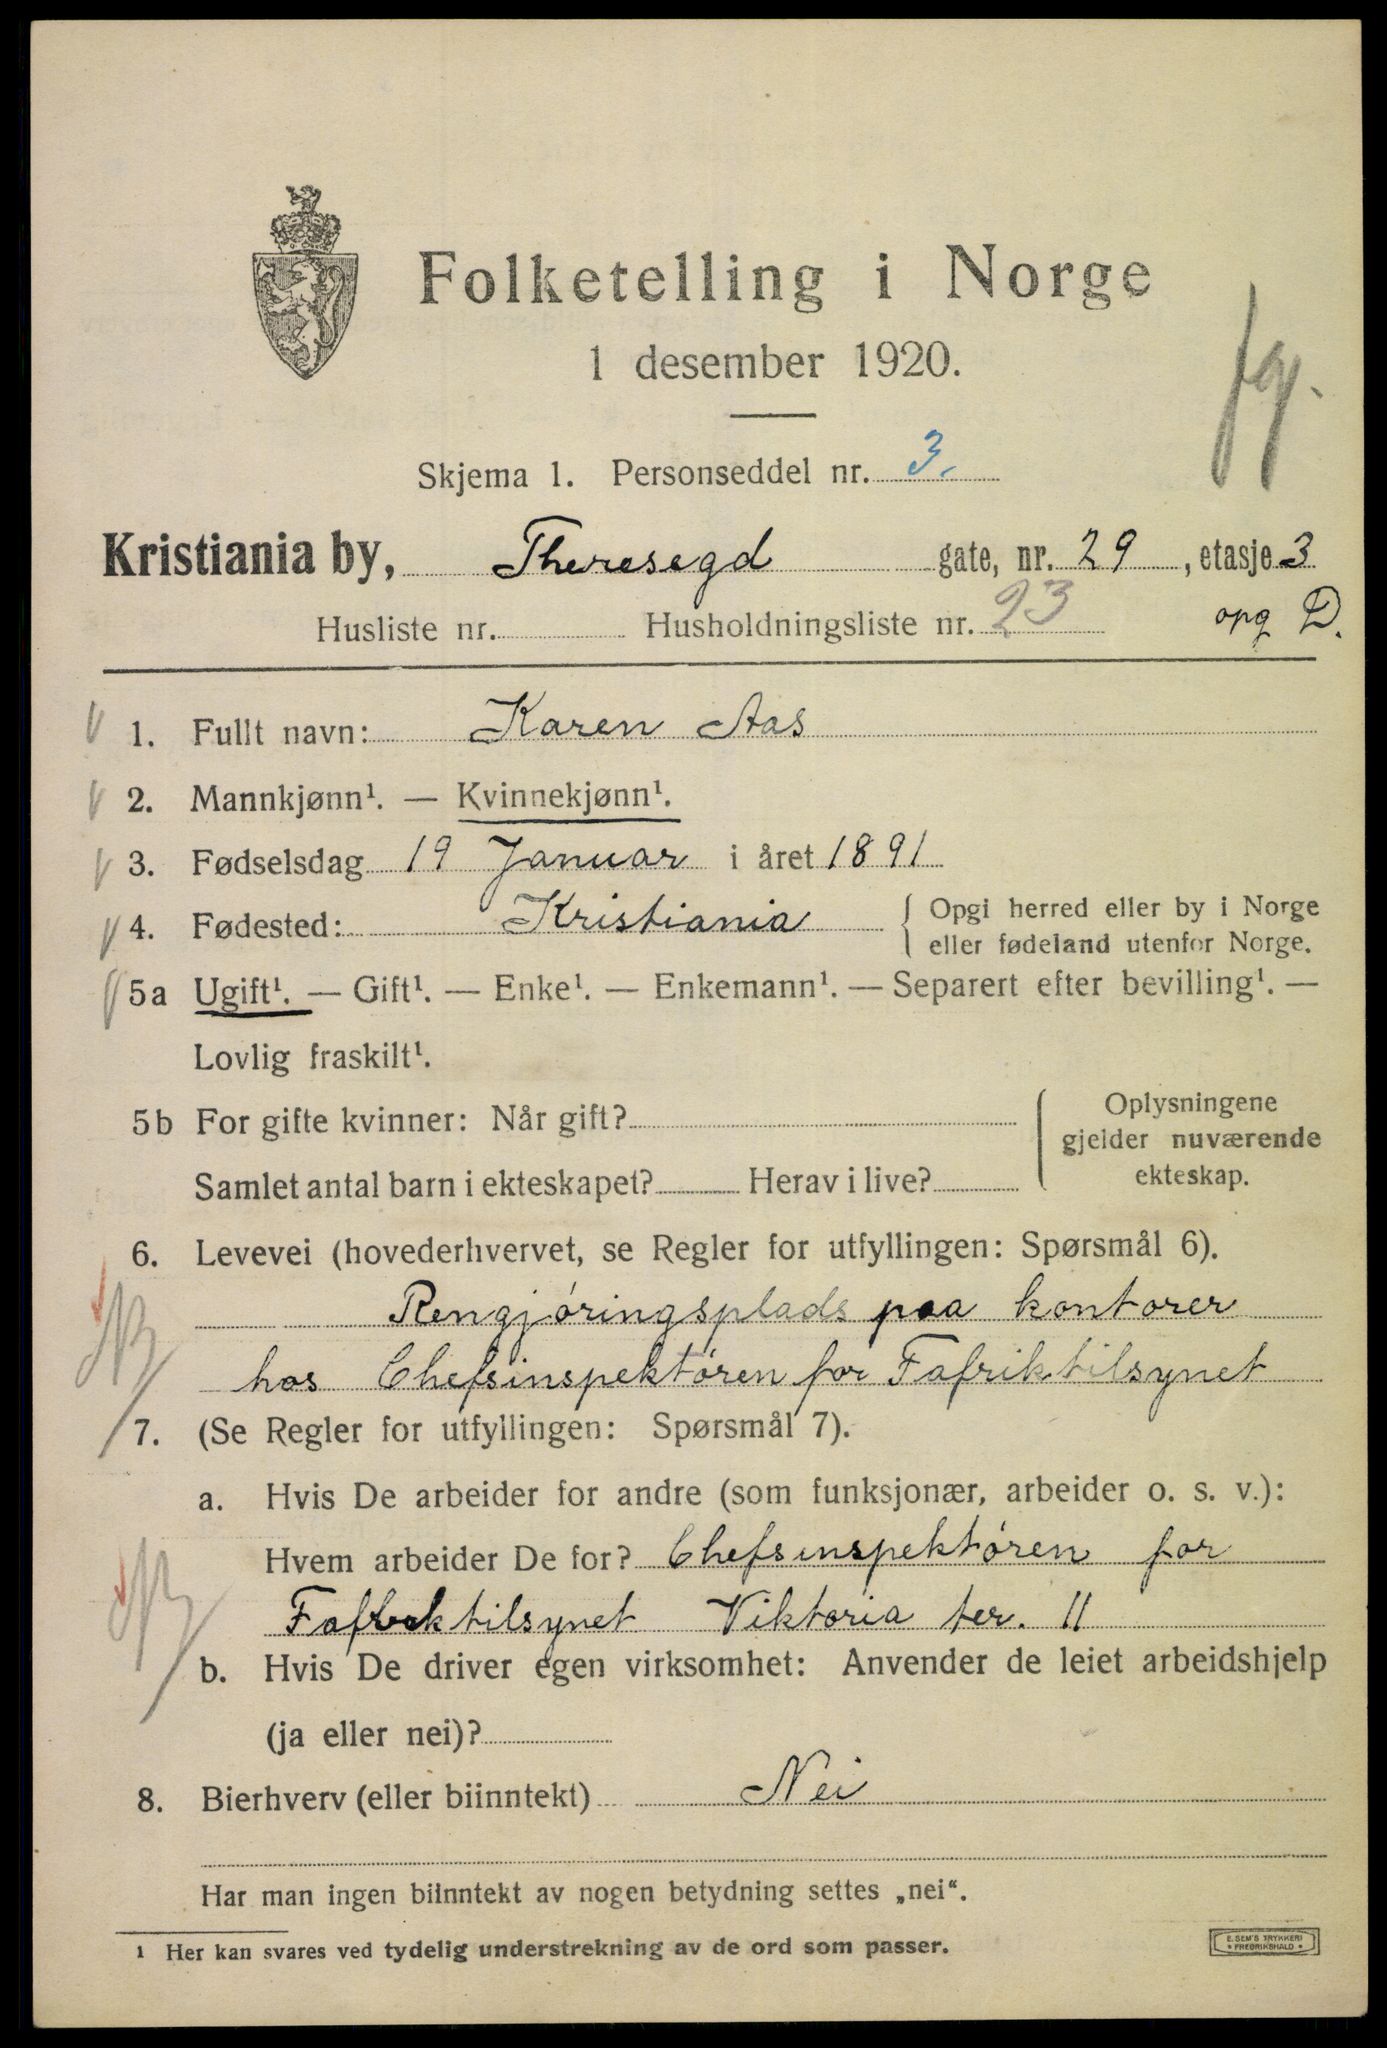 Folketelling i Norge
1 desember 1920.
Skjema 1. Personseddel nr. 3.
Kristiania by, Theresegd gate, nr. 29, etasje 3
Husliste nr. Husholdningsliste nr. 23 opg D.
1. Fullt navn: Karen Aas
2. Mannkjønn¹. — Kvinnekjønn¹.
3. Fødselsdag 19 Januar i året 1891
4. Fødested: Kristiania { Opgi herred eller by i Norge
eller fødeland utenfor Norge.
5a Ugift¹. — Gift¹. — Enke¹. — Enkemann¹. — Separert efter bevilling¹. —
Lovlig fraskilt¹.
5b For gifte kvinner: Når gift?
Samlet antal barn i ekteskapet? Herav i live?
Oplysningene
gjelder nuværende
ekteskap.
6. Levevei (hovederhvervet, se Regler for utfyllingen: Spørsmål 6).
Rengjøringsplads paa kontorer
hos Chefsinspektøren for Fafriktilsynet
7. (Se Regler for utfyllingen: Spørsmål 7).
a. Hvis De arbeider for andre (som funksjonær, arbeider o. s. v.):
Hvem arbeider De for? Chefsinspektøren for
tilsynet Viktoria ter. 11
b. Hvis De driver egen virksomhet: Anvender de leiet arbeidshjelp
(ja eller nei)?
8. Bierhverv (eller biinntekt) Nei
Har man ingen biinntekt av nogen betydning settes „nei“.
1 Her kan svares ved tydelig understrekning av de ord som passer.
E. SEM'S TRYKKERI
FREDRIKSHALD